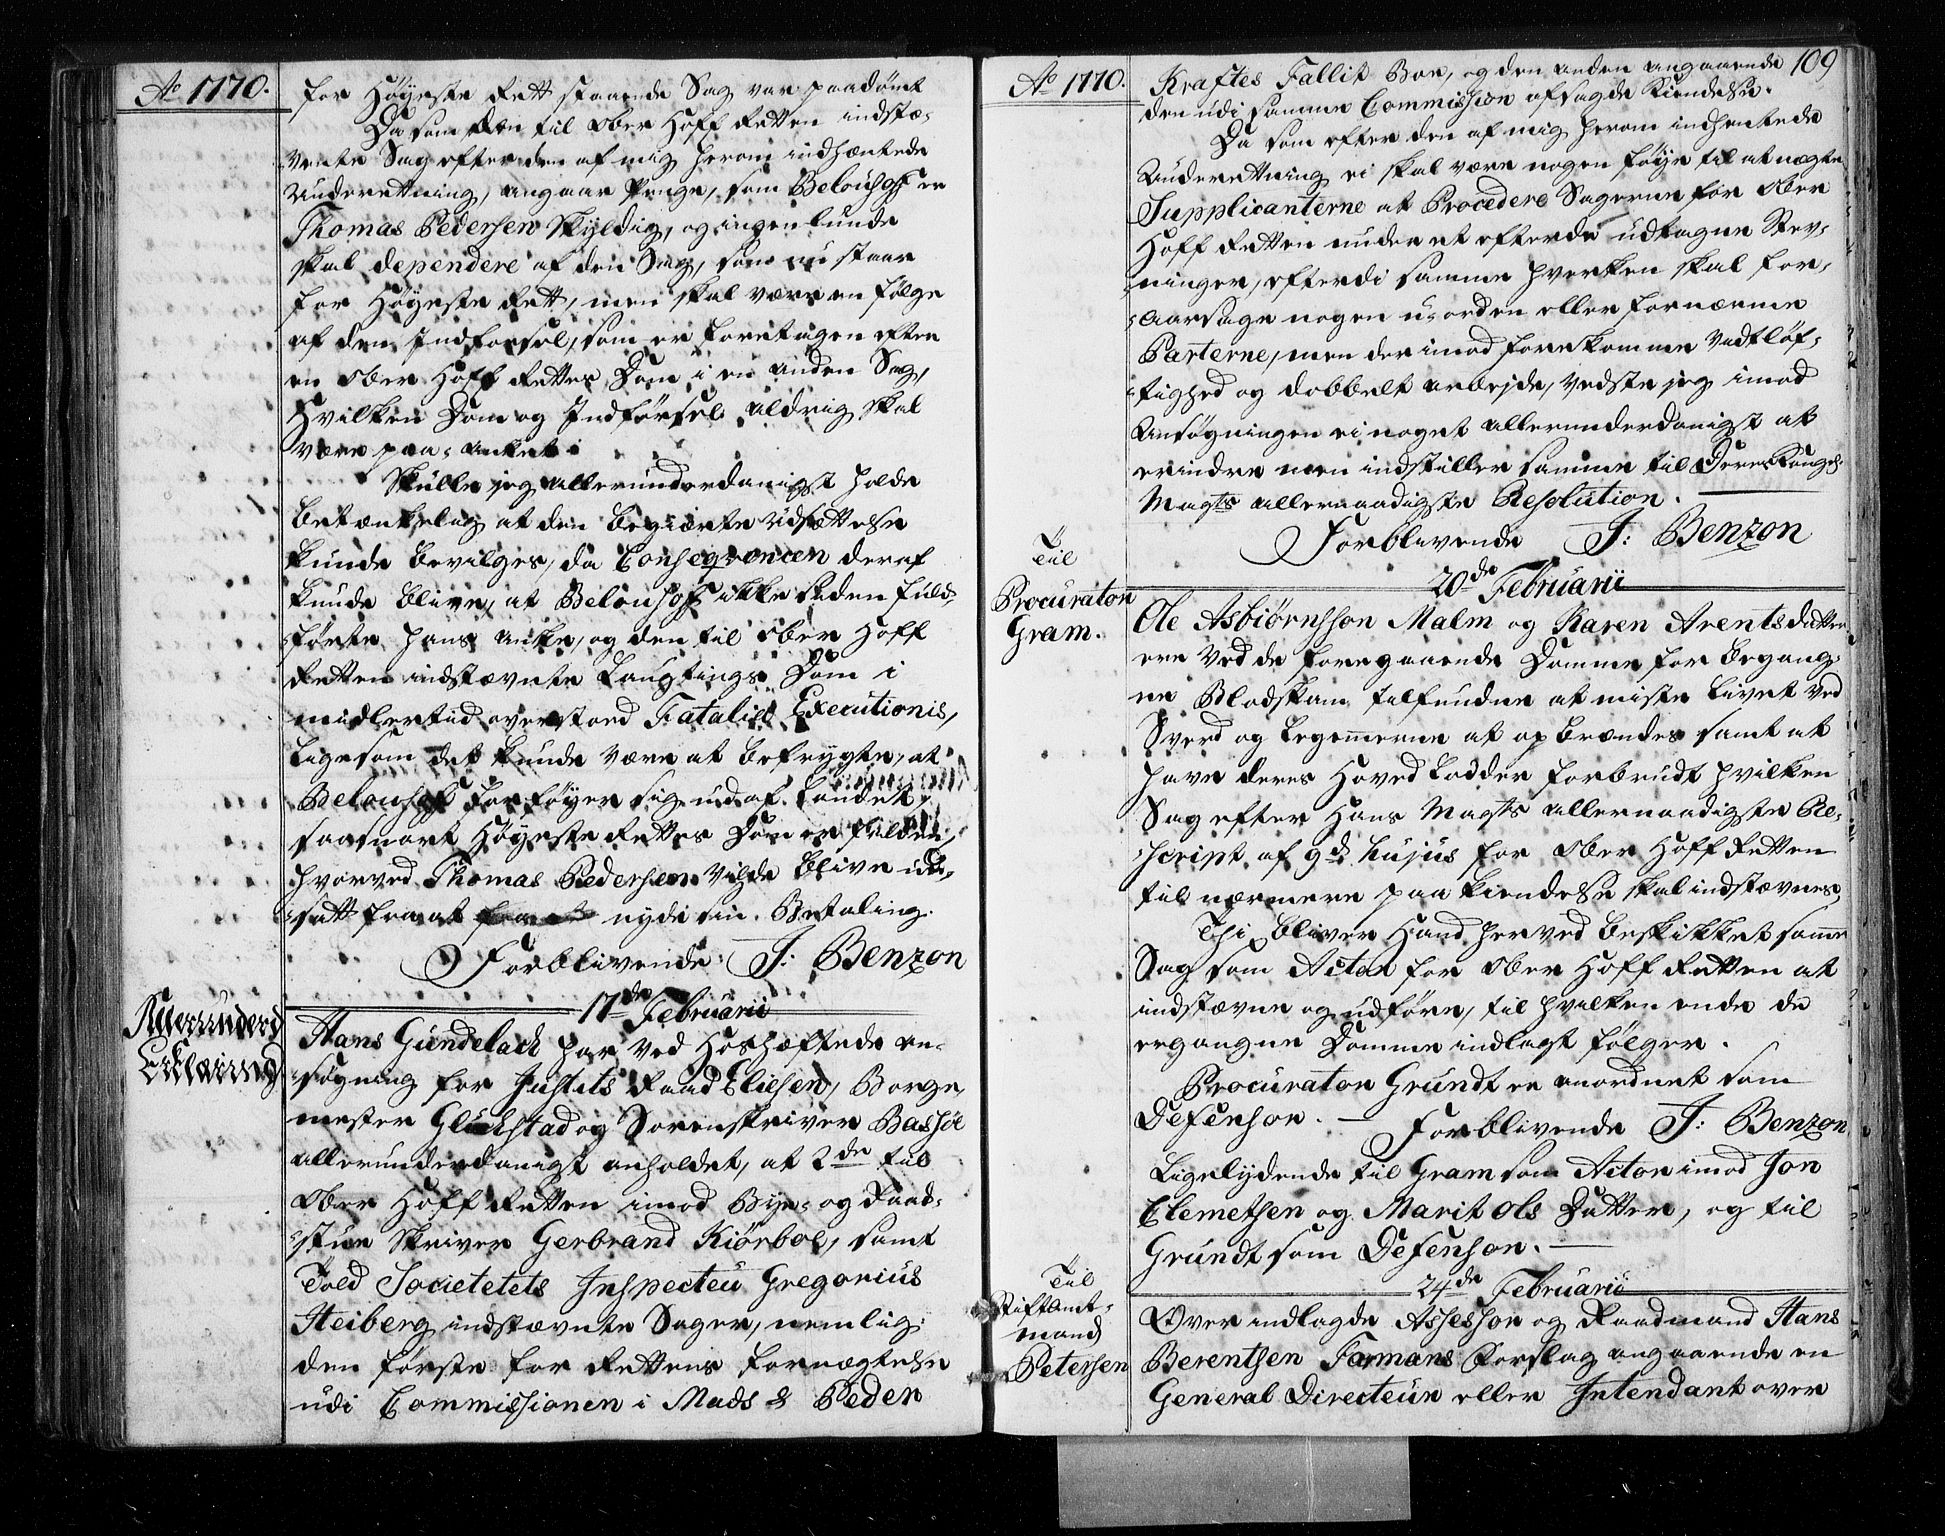 Ao 1770.
for Høyeste Rett staaende Sag var paadømt
Da som den til Ober Hoff Retten indstæ-
vnte Sag efter den af mig herom indhæntede
Underrettning, angaar Penge, som Belouhoff er
Thomas Pedersen skyldig, og ingenlunde
skal dependere af den Sag, som nu staar
for Høyeste Rett, men skal være en følge
af den Indførsel, som er foretagen efter
en Ober Hoff Rettes Dom i en anden Sag,
hvilken Dom og Indførsel aldrig skal
være paa-anket.
Skulle jeg allerunderdanigst holde
betænkelig at den begiærte Udsættelse
kunde bevilges, da Conseqvencen deraf
kunde blive, at Belouhoff ikke siden fuld-
førte hans anke, og den til Ober Hoff
Retten indstævnte Laugtings Dom i
midlertid oversted Fatalia Executionis,
ligesom det kunde være at befrygte, at
Belouhoff forføyer sig ud af Landet,
saasnart Høyeste Rettes Dom er falden,
hvorved Thomas Pedersen vilde blive ud-
satt fra at nyde sin Betaling.
Forblivende J: Benzon
17de Februarii
Allerunderd
Erklæring
Hans Gundelach har ved hoshæftede an-
søgning for Justits Raad Eliesen, Borge-
mester Glückstad og Sorenskriver Bassøe
allerunderdanigst anholdet, at 2de til
Ober Hoff Retten imod Bye- og Raad-
stue Skriver Gerbrand Kiørboe, samt
Told Societetets Inspecteur Gregorius
Heiberg indstævnte Sager, nemlig:
den første for Rettens fornægtelse
udi Commissionen i Mads & Peder
109
Ao 1770.
Kraftes Fallit Boe, og den anden angaaende
den udi samme Commission afsagde Kiendelse.
Da som efter den af mig herom indhentede
Underrettning ei skal være nogen føye til at nægte
Supplicanterne at Procedere Sagerne for Ober
Hoff Retten under et efter de udtagne Stev-
ninger, efterdi samme hverken skal for-
aarsage nogen u-orden eller fornærme
Parterne, men derimod forekomme Vidtløf-
tighed og dobbelt arbejde, vedste jeg imod
Ansøgningen ei noget allerunderdanigst at
erindre men indstiller samme til Deres Kongel.
Maytts allernaadigste Resolution.
Forblivende J: Benzon
20de Februarii
Til
Procurator
Gram.
Ole Asbiørnsson Malm og Karen Arentsdatter
ere ved de foregaaende Domme for begang-
ne Blodskam tilfundne at miste Livet ved
Sverd og Legemerne at opbrændes samt at
have deres Hoved Lodder forbrudt hvilken
Sag efter Hans Maytts allernaadigste Re-
script af 9d hujus for Ober Hoff Retten
til nærmere paakiendelse skal indstævnes,
Thi bliver Hand herved beskikket samme
Sag som Actor for Ober Hoff Retten at
indstævne og udføre, til hvilken ende de
ergangne Domme indlagt følger.
Procurator Grundt er anordnet som
Defensor. — Forblivende J: Benzon
Ligelydende til Gram som Actor imod Jon
Clemetsen og Marit Ols Datter, og til
Grundt som Defensor. —
24de Februarii
Til
Stiftamt-
mand
Petersen
Over indlagde Assessor og Raadmand Hans
Berentsen Farmans Forslag angaaende en
General Directeur eller Intendant over